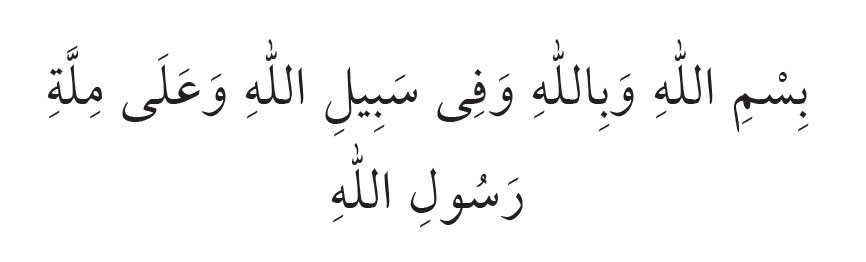 بِسْمِ اللّٰهِ وَبِاللّٰهِ وَفِى سَبِيلِ اللّٰهِ وَعَلَى مِلَّةِ
رَسُولِ اللّٰهِ